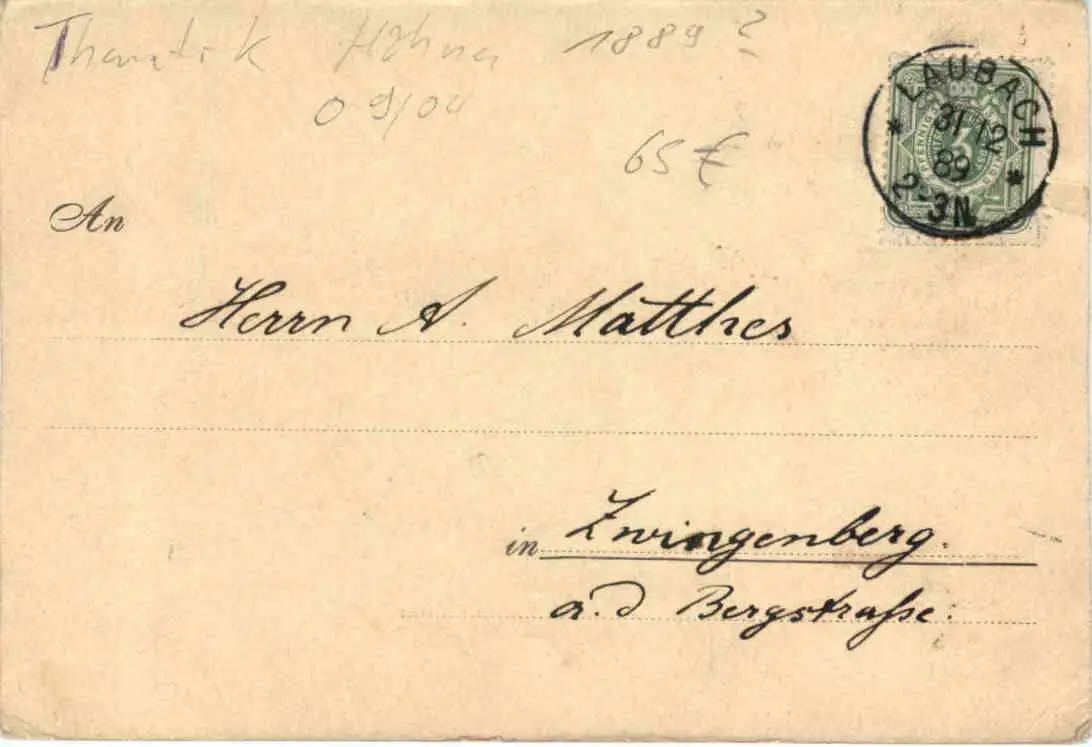 1889 ?
09/04
65 €
LAUBACH
31 12
89
2-3N
3
An
Herrn A. Matthes
in Zwingenberg.
a. d Bergstraße.